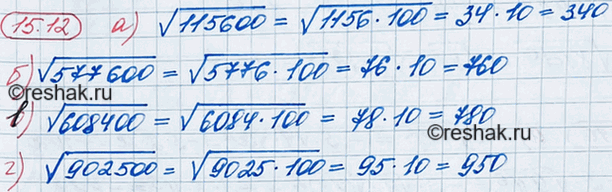 15.12 а) √115600 = √1156·100 = 34·10 = 340
б) √577600 = √5776·100 = 76·10 = 760
©reshak.ru
в) √608400 = √6084·100 = 78·10 = 780
©reshak.ru
г) √902500 = √9025·100 = 95·10 = 950